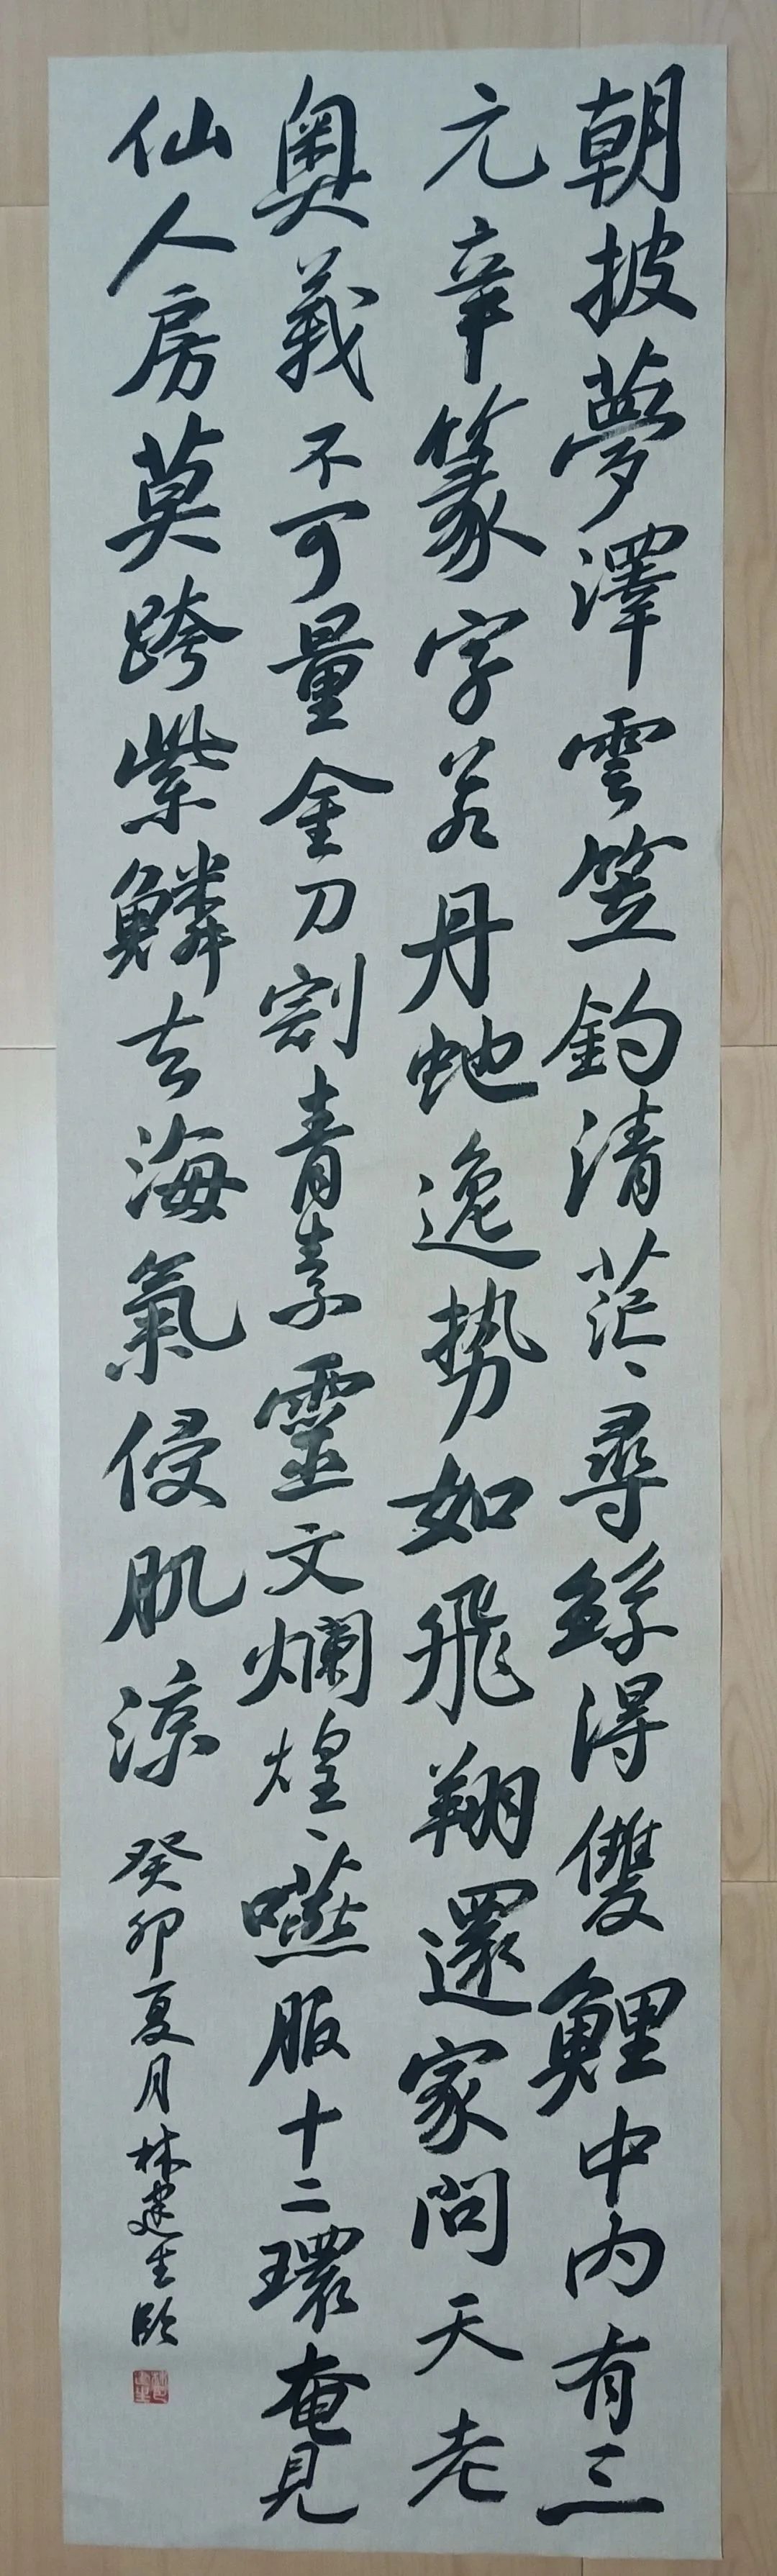 朝披夢澤雲笠釣清茫〻尋絲得雙鯉中內有三
元章篆字若丹虵逸勢如飛翔還家問天老
奧義不可量金刀割青素靈文爛煌〻嚥服十二環奄見
仙人房莫跨紫鱗去海氣侵肌涼
癸卯夏月林建生臨